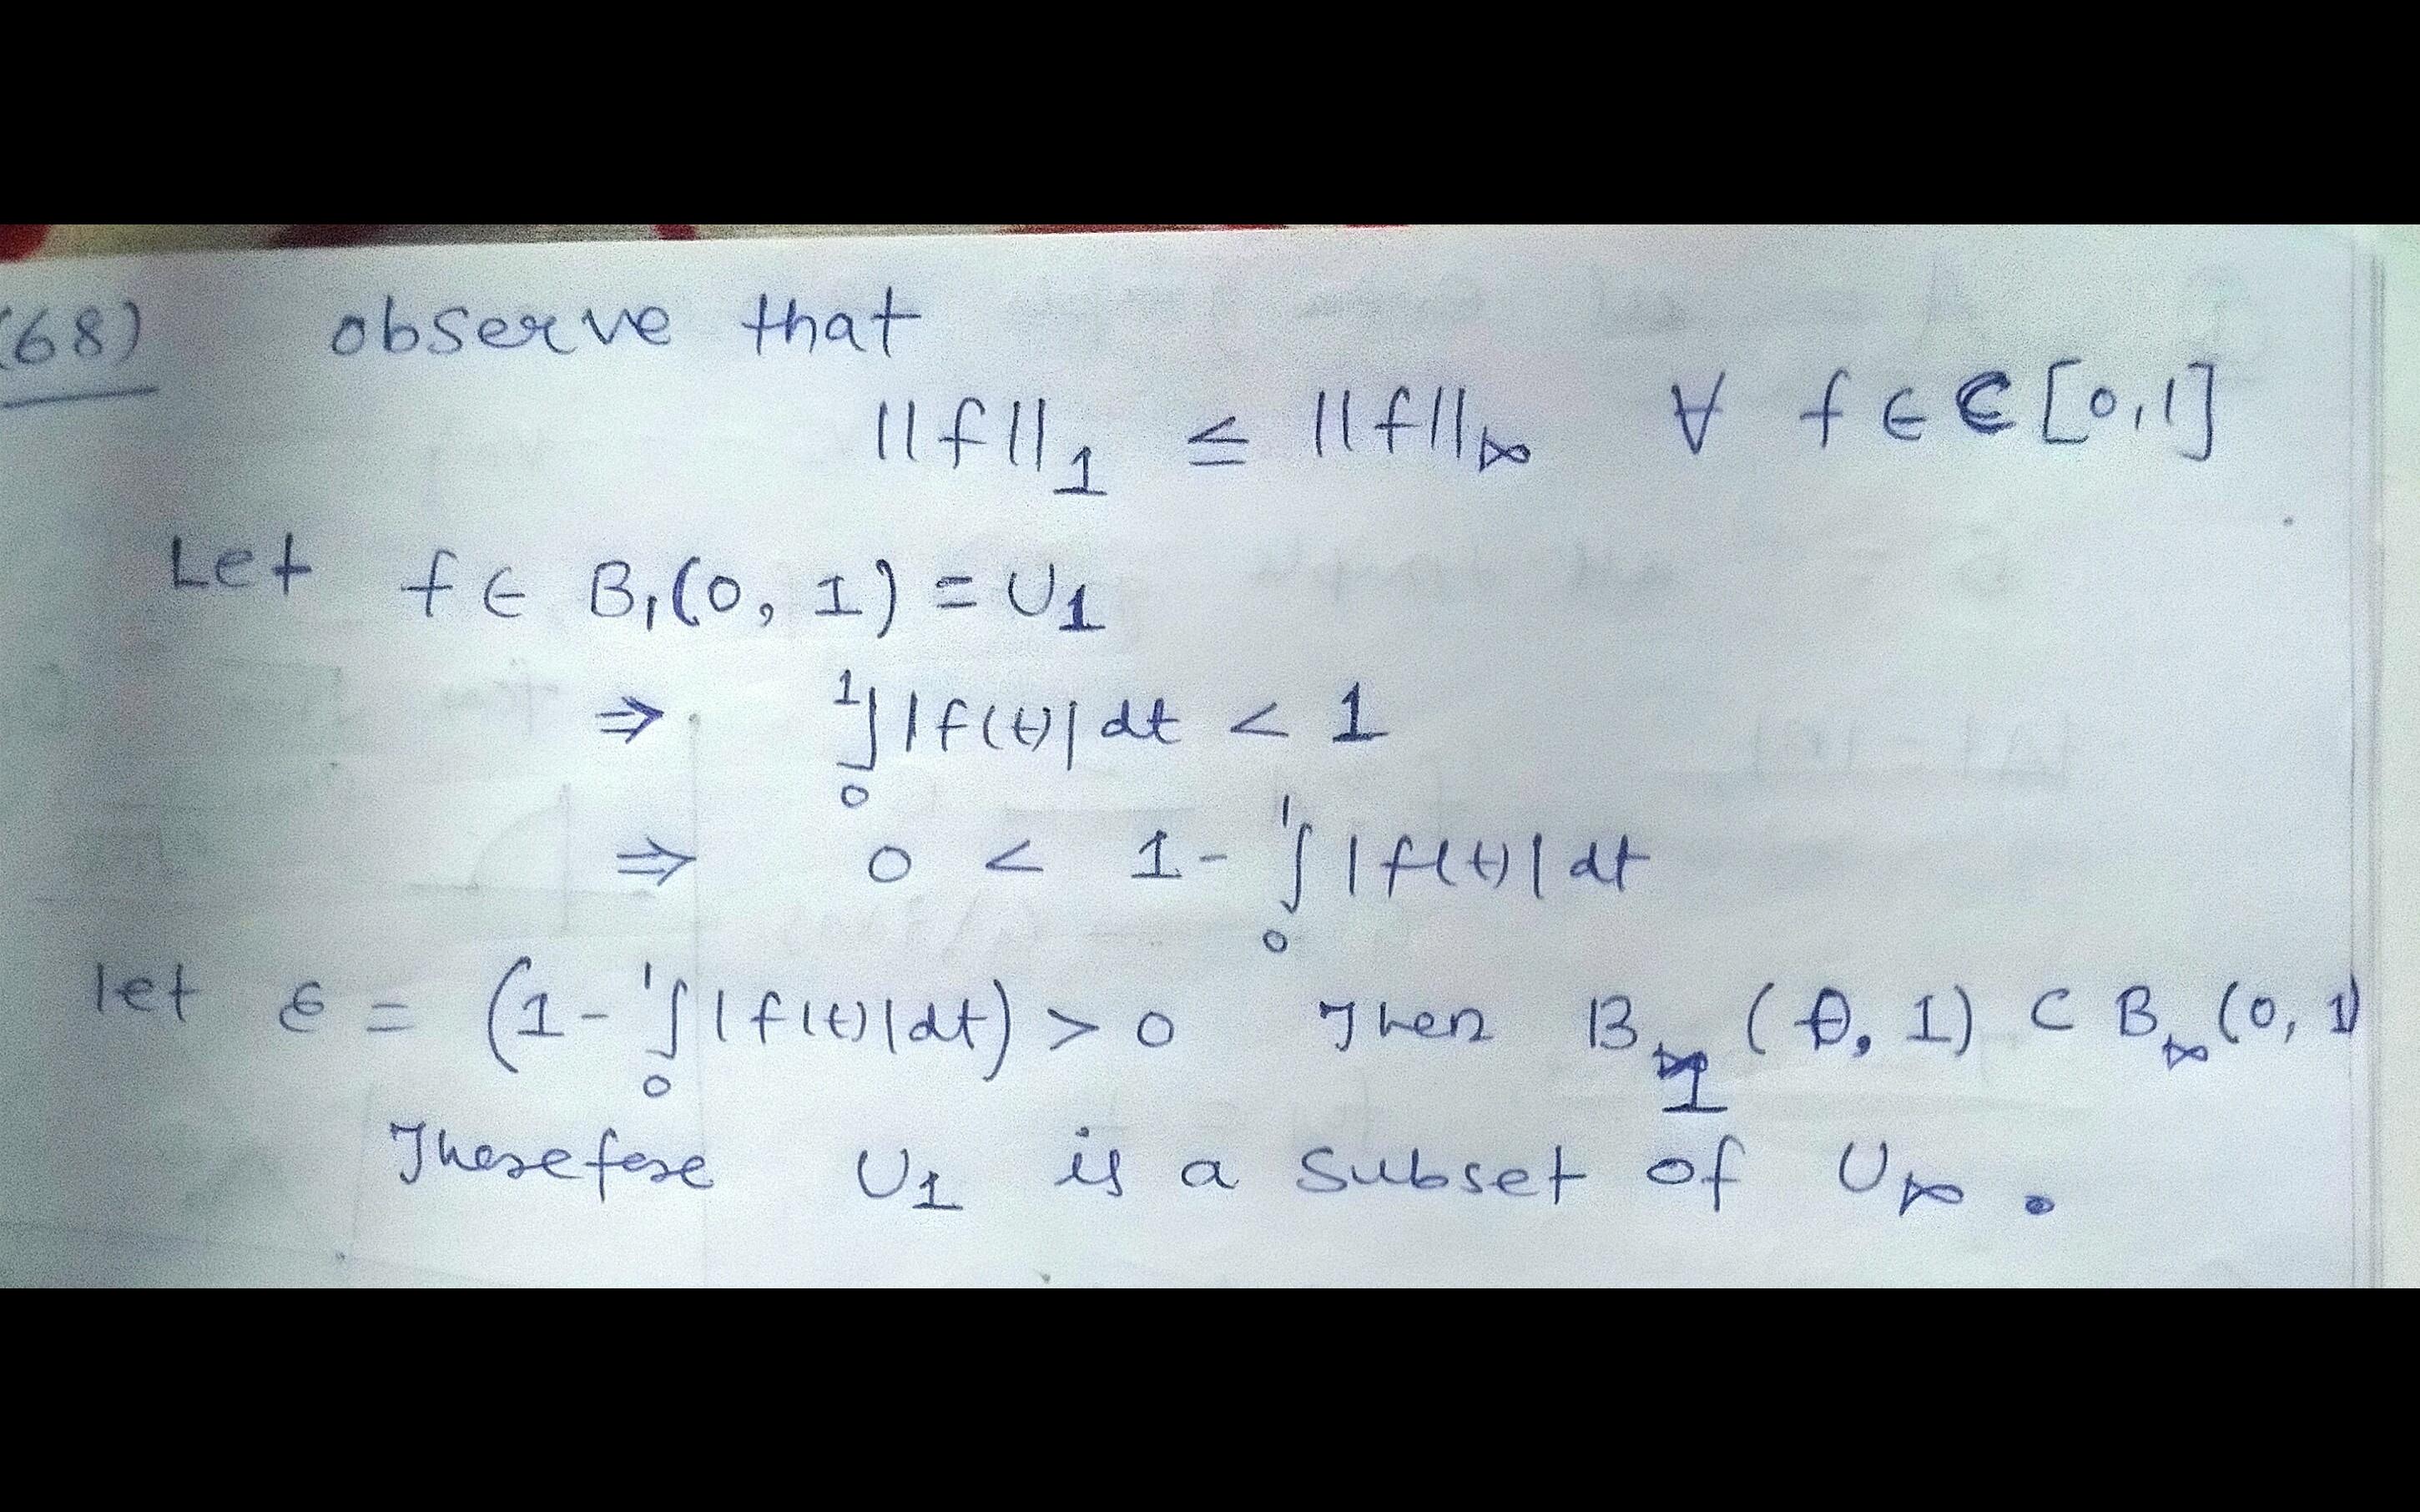 (68) observe that
||f||₁ ≤ ||f||∞ ∀ f ∈ C[0,1]
Let f ∈ B₁(0, 1) = U₁
⇒ ₀∫¹ |f(t)| dt < 1
⇒ 0 < 1 - ₀∫¹ |f(t)| dt
let ε = (1 - ₀∫¹ |f(t)| dt) > 0 Then B₁(0, 1) ⊂ B∞(0, 1)
Therefore U₁ is a subset of U∞.